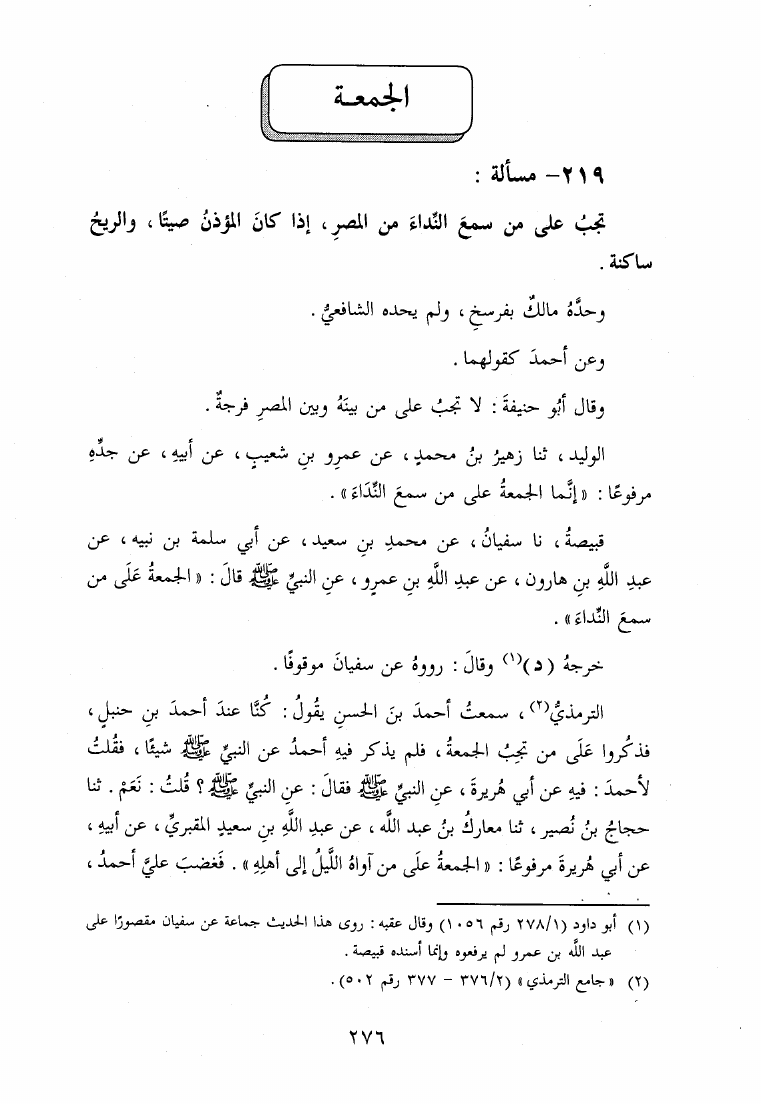 الجمعـة
٢١٩- مسألة :
تجبُ على من سمعَ النِّداءَ من المصرِ ، إذا كانَ المؤذنُ صيتًا ، والريحُ
ساكنة .
وحدَّهُ مالكٌ بفرسخٍ ، ولم يحده الشافعيُّ .
وعن أحمدَ كقولهما .
وقال أبُو حنيفةَ : لا تجبُ على من بينَهُ وبين المصرِ فرجةٌ .
الوليد ، ثنا زهيرُ بنُ محمدٍ ، عن عمرِو بنِ شعيبٍ ، عن أبيهِ ، عن جدِّهِ
مرفوعًا : « إنَّما الجمعةُ على من سمعَ النِّدَاءَ » .
قبيصةُ ، نا سفيانُ ، عن محمدِ بنِ سعيد ، عن أبي سلمة بن نبيه ، عن
عبدِ اللَّهِ بنِ هارون ، عن عبدِ اللَّهِ بنِ عمرٍو ، عن النبيِّ ﷺ قالَ : « الجمعةُ عَلَى من
سمعَ النِّداءَ » .
خرجهُ (د)(١) وقالَ : رووهُ عن سفيانَ موقوفًا .
الترمذيُّ(٢) ، سمعتُ أحمدَ بنَ الحسنِ يقُولُ : كُنَّا عندَ أحمدَ بنِ حنبلٍ ،
فذكُروا عَلَى من تجبُ الجمعةُ ، فلم يذكر فيهِ أحمدُ عن النبيِّ ﷺ شيئًا ، فقُلتُ
لأحمدَ : فيهِ عن أبي هُريرةَ ، عنِ النبيِّ ﷺ فقالَ : عنِ النبيِّ ﷺ ؟ قُلتُ : نَعَمْ . ثنا
حجاجُ بنُ نُصير ، ثنا معاركُ بنُ عبد اللَّه ، عن عبدِ اللَّهِ بنِ سعيدٍ المقبريِّ ، عن أبيهِ ،
عن أبي هُريرةَ مرفوعًا : « الجمعةُ علَى من آواهُ اللَّيلُ إلى أهلِهِ » . فَغضبَ عليَّ أحمدُ ،
(١) أبو داود (٢٧٨/١ رقم ١٠٥٦) وقال عقبه : روى هذا الحديث جماعة عن سفيان مقصورًا على
عبد اللَّه بن عمرو لم يرفعوه وإنما أسنده قبيصة .
(٢) « جامع الترمذي » (٣٧٦/٢ – ٣٧٧ رقم ٥٠٢) .
٢٧٦